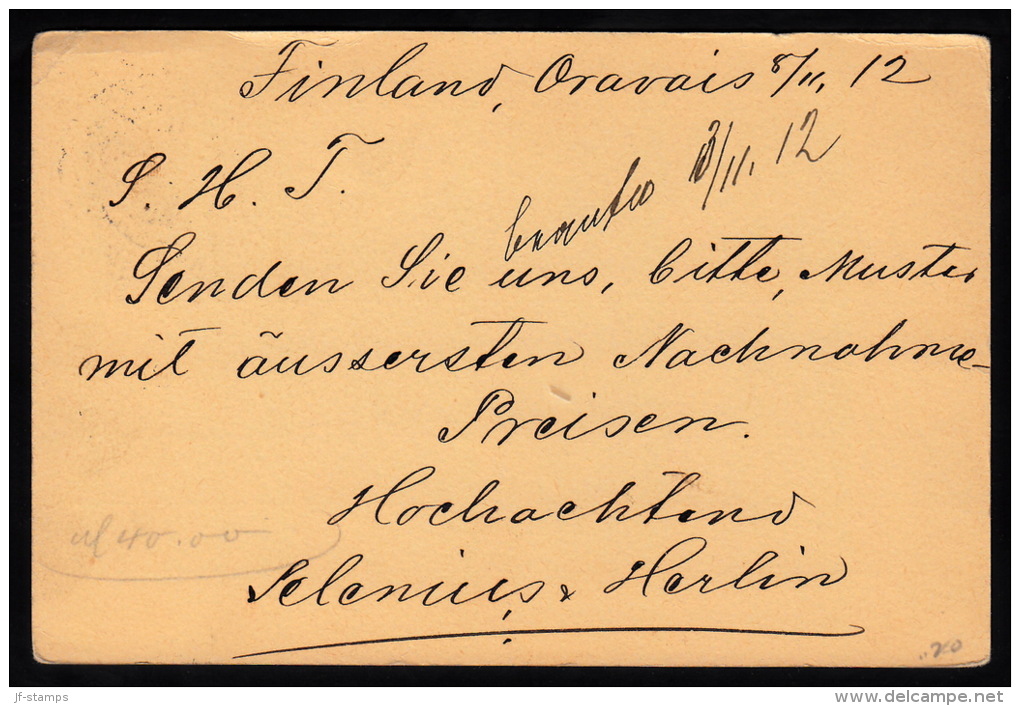 Finland, Oravais 8/11, 12
S. H. T.
13/11. 12
Senden Sie uns, bitte, Muster
mit äussersten Nachnahme-
Preisen.
Hochachtend
Selenius & Herlin
40.00
20
jf-stamps
www.delcampe.net